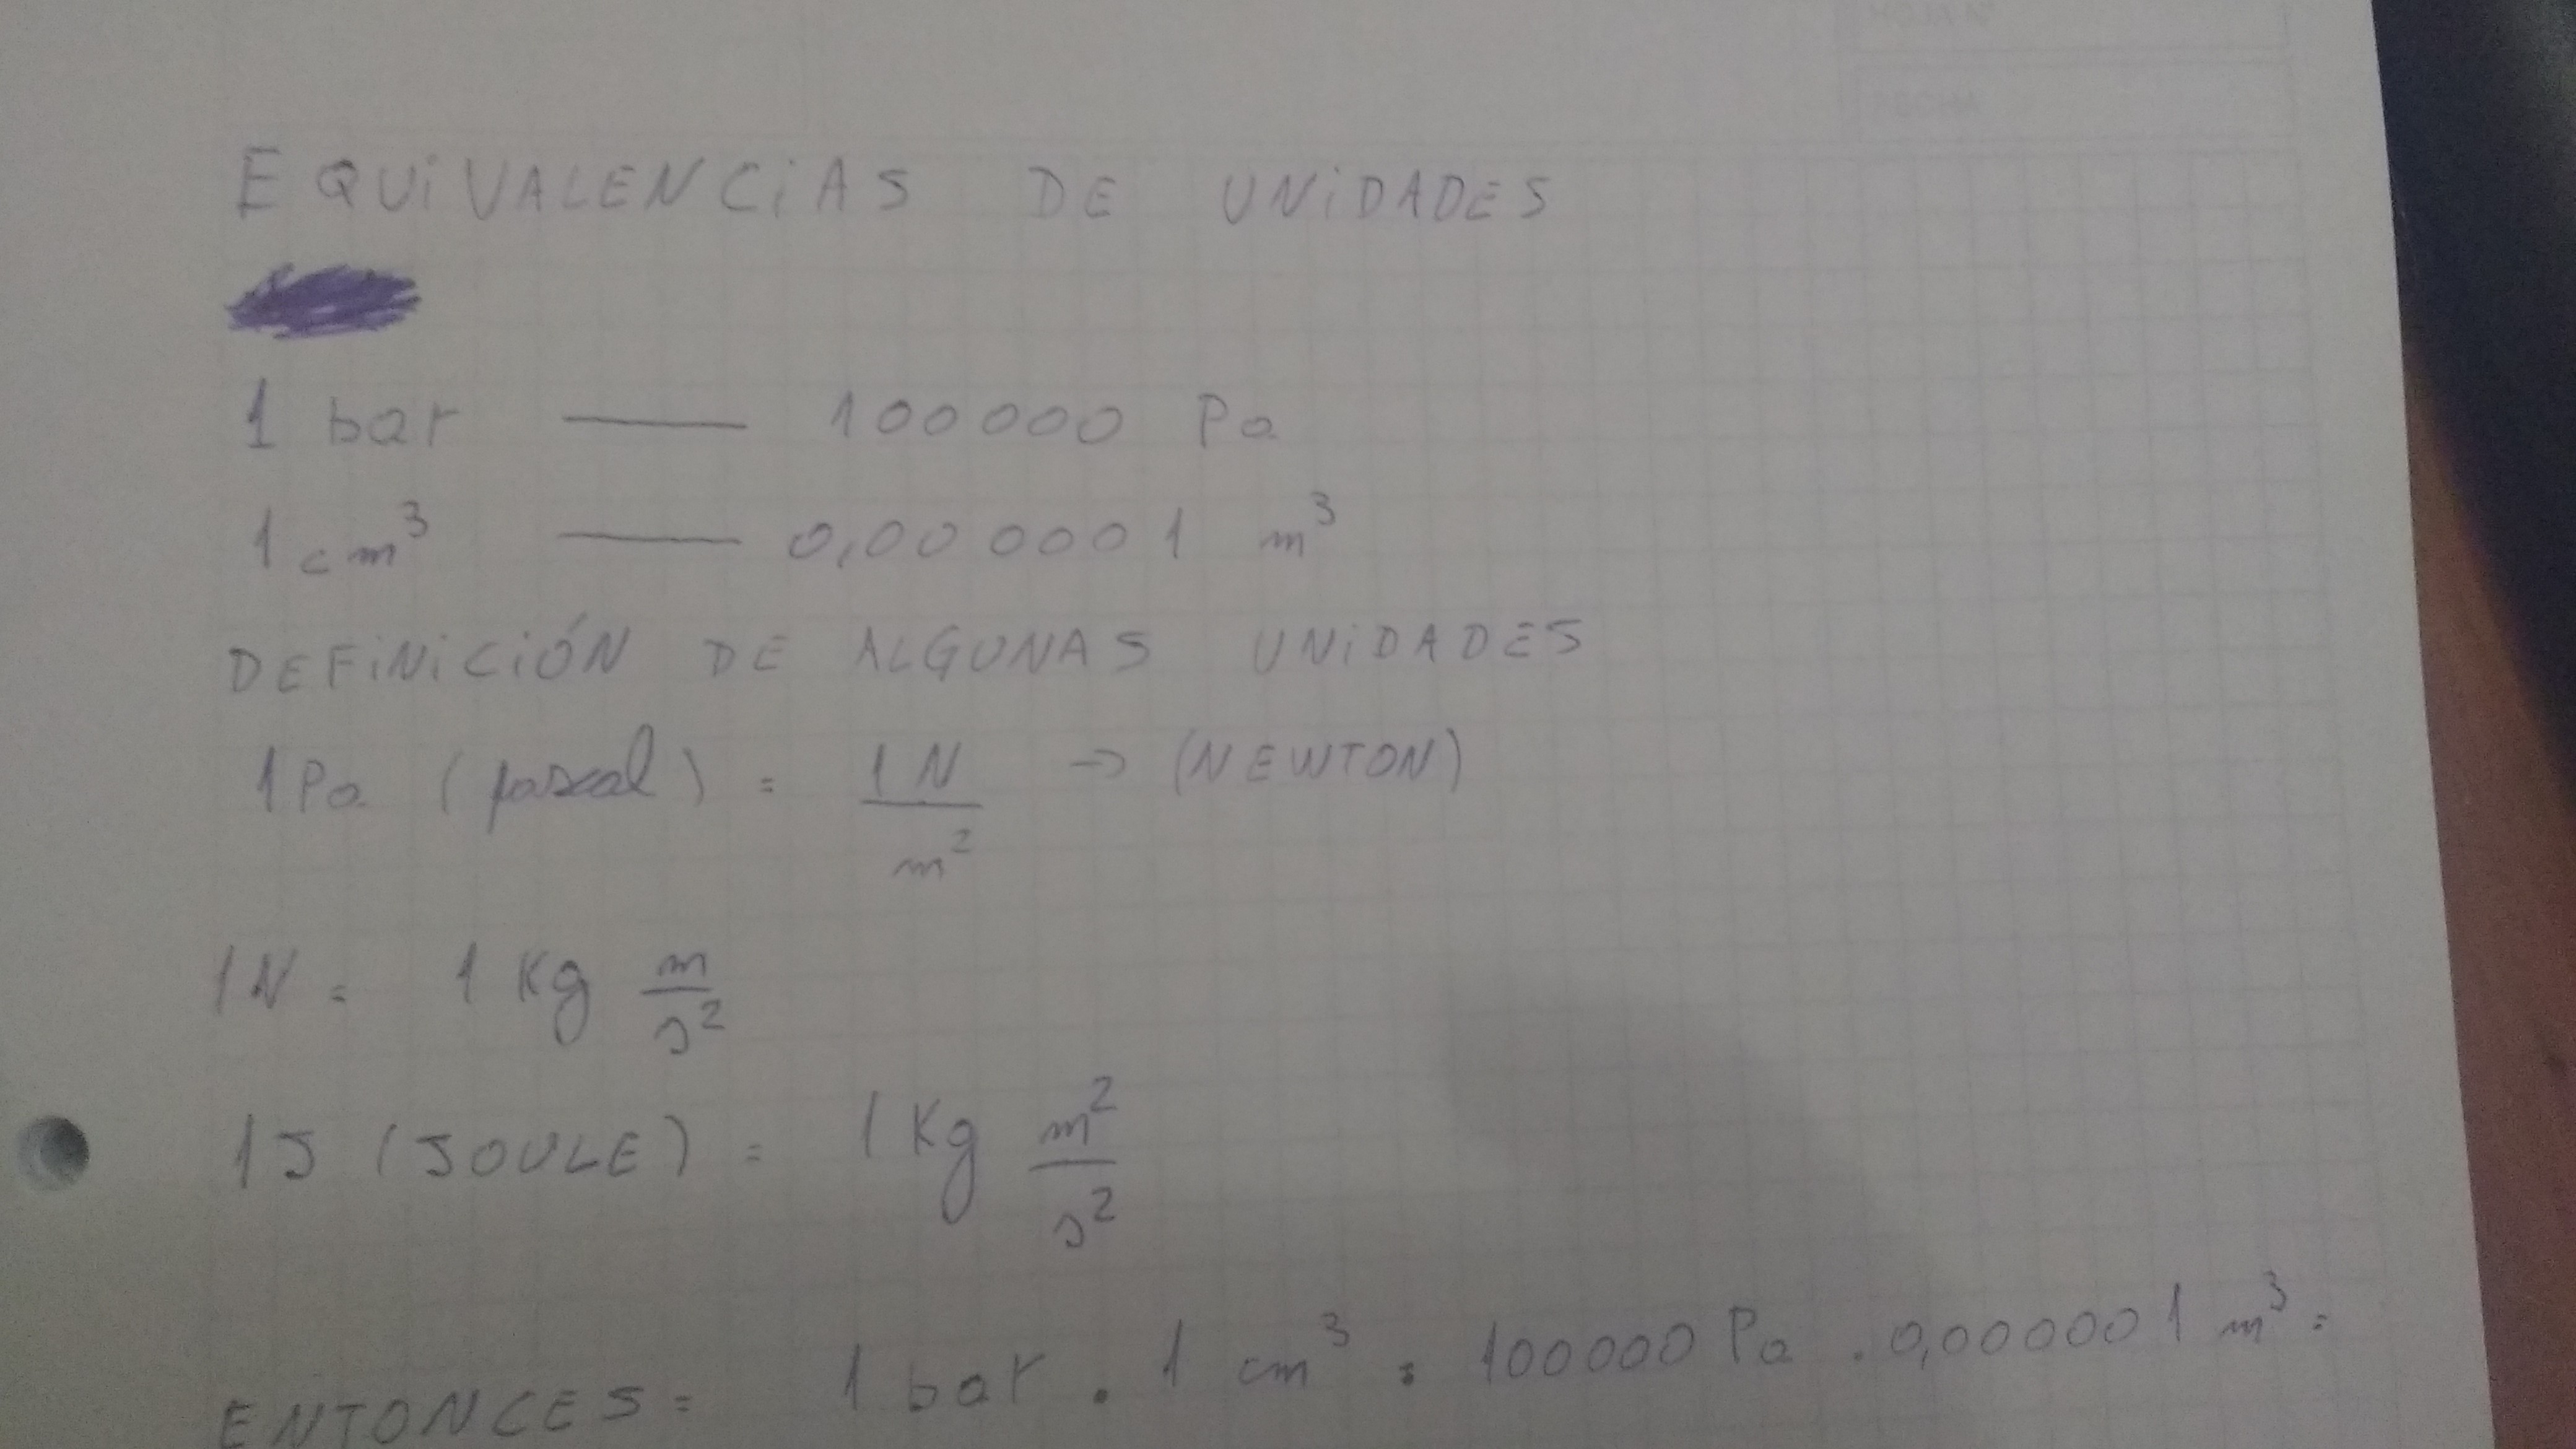 EQUIVALENCIAS DE UNIDADES
1 bar — 100000 Pa
1 cm³ — 0,000001 m³
DEFINICIÓN DE ALGUNAS UNIDADES
1 Pa (pascal) = 1 N / m² → (NEWTON)
1N = 1 Kg m / s²
1J (JOULE) = 1 Kg m² / s²
ENTONCES = 1 bar . 1 cm³ = 100000 Pa . 0,000001 m³ =